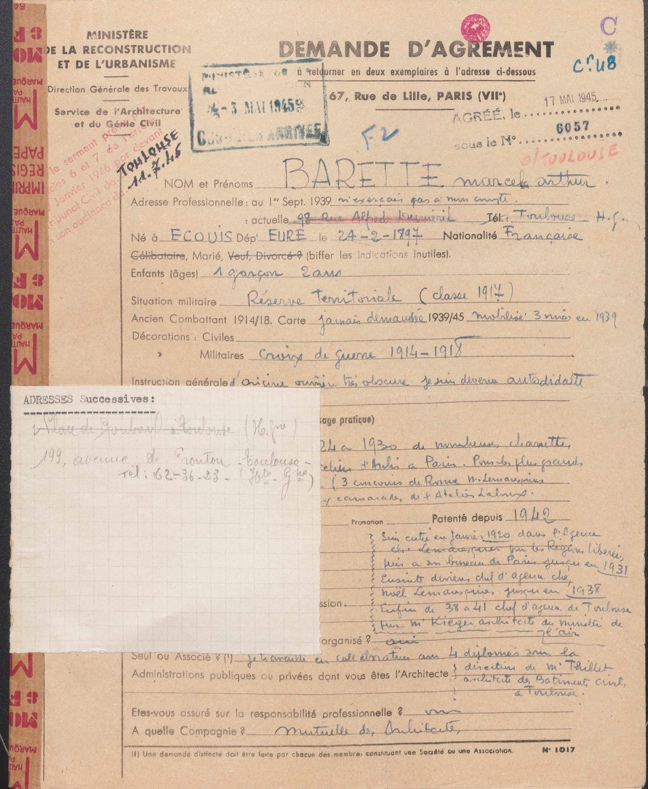 MINISTÈRE
DE LA RECONSTRUCTION
ET DE L'URBANISME
Direction Générale des Travaux
Service de l'Architecture
et du Génie Civil
TOULOUSE
11.7.45
C
DEMANDE D'AGRÉMENT
à retourner en deux exemplaires à l'adresse ci-dessous
67, Rue de Lille, PARIS (VIIe)
3 MAI 1945
COURRIER ARRIVÉE
AGRÉÉ, le 17 MAI 1945
sous le No 6057
TOULOUSE
NOM et Prénoms BARETTE marcel arthur.
Adresse Professionnelle : au 1er Sept. 1939 n'exerçais pas à mon compte
: actuelle 98 Rue Alfred Duméril Tél. Toulouse H.G.
Né à ECOUIS Dépt EURE le 24-2-1797 Nationalité Française
Célibataire, Marié, Veuf, Divorcé ? (biffer les indications inutiles).
Enfants (âges) 1 garçon 2 ans
Situation militaire Réserve territoriale (classe 1917)
Ancien Combattant 1914/18. Carte jamais demandée 1939/45 mobilisé 3 mois en 1939
Décorations : Civiles
» Militaires Croix de guerre 1914-1918
Instruction générale d'origine ouvrière très obscure je suis devenu autodidacte
ADRESSES Successives:
Toulouse (H. Gne)
199, avenue de Fronton Toulouse -
Tél: 62-36-23 - (Hte Gne)
sage pratique)
24 a 1930 de nombreuses charrettes
ateliers d'Archi à Paris. Pour les plus grands
(3 concours de Rome M. Lemaresquier
camarades de l'Atelier Laloux.
Promotion Patenté depuis 1942
Suis entré en Janvier 1920 dans l'Agence
chez Lemaresquier pour les Régions libérées,
puis a son bureau de Paris jusqu'en 1931
Ensuite deviens chef d'agence chez
Noël Lemaresquier jusqu'en 1938
Enfin de 38 a 41 chef d'agence de Toulouse
sur Mr Krieger architecte du ministère de
l'air
ssion.
organisé ? oui
Seul ou Associé ? (1) je travaille en collaboration avec 4 diplômés sous la
direction de Mr Thillet
Administrations publiques ou privées dont vous êtes l'Architecte
architecte des Batiments Civils
a Toulouse.
Etes-vous assuré sur la responsabilité professionnelle ? oui
A quelle Compagnie ? Mutuelle des Architectes
(1) Une demande distincte doit être faite par chacun des membres constituant une Société ou une Association.
No 1017